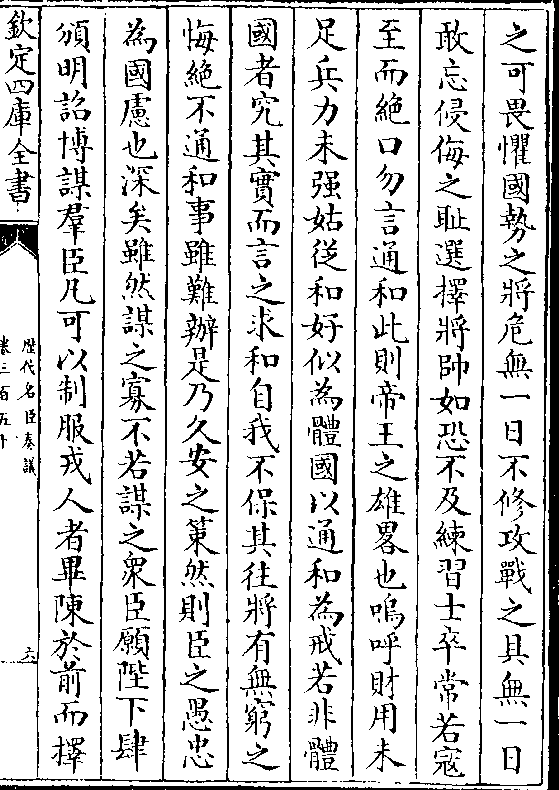 之可畏懼國勢之將危無一日不修攻戰之具無一日
敢忘侵侮之耻選擇將帥如恐不及練習士卒常若寇
至而絶口勿言通和此則帝王之雄畧也嗚呼財用未
足兵力未强姑從和好似為體國以通和為戒若非體
國者究其實而言之求和自我不保其往將有無窮之
悔絶不通和事雖難辦是乃久安之策然則臣之愚忠
為國慮也深矣雖然謀之寡不若謀之衆臣願陛下肆
頒明詔博謀羣臣凡可以制服戎人者畢陳於前而擇
欽定四庫全書
歴代名臣奏議
卷三百五十
六